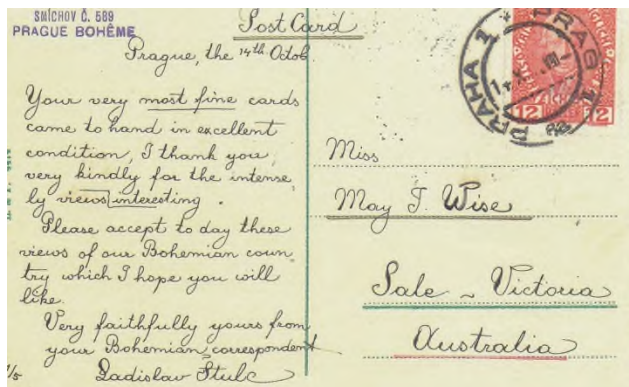 SMÍCHOV Č. 589
PRAGUE BOHÊME
Post Card
Prague, the 14th Octob
Your very most fine cards
came to hand in excellent
condition, I thank you
very kindly for the intense,
ly views interesting.
Please accept to day these
views of our Bohemian coun,
try which I hope you will
like.
Very faithfully yours from
your Bohemian correspondent
Ladislav Štulc
1/5
PRAHA 1 * PRAG 1
12 12
Miss
May T. Wise
Sale ~ Victoria
Australia